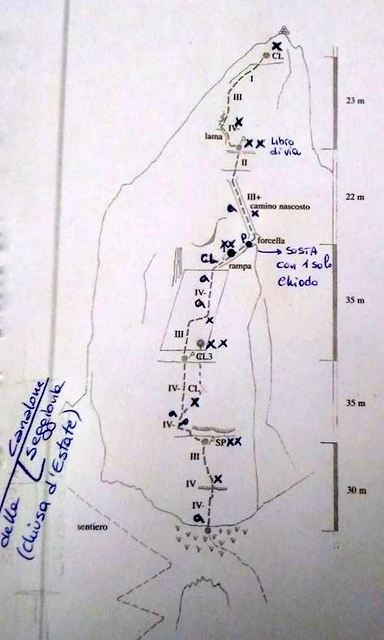 x
CL
I
III
23 m
IV-
x
lama
x x
Libro
di via
II
III+
22 m
camino nascosto
x
P
forcella
xx
CL
rampa
→ SOSTA
con 1 solo
Chiodo
IV-
35 m
x
III
x x
CL3
IV-
CL
x
35 m
IV-
SP xx
III
IV
x
30 m
IV-
sentiero
della
Canalone
Seggiovia
(chiusa d'Estate)